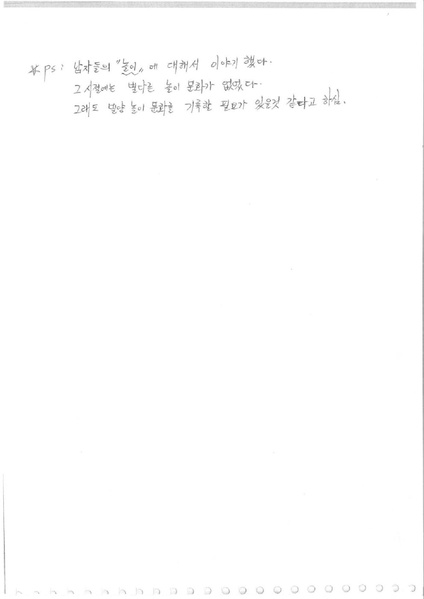 ※ PS : 남자들의 "놀이"에 대해서 이야기 했다.
그 시절에는 별다른 놀이 문화가 없었다.
그래도 놀이 문화를 기록할 필요가 있을것 같다고 하심.